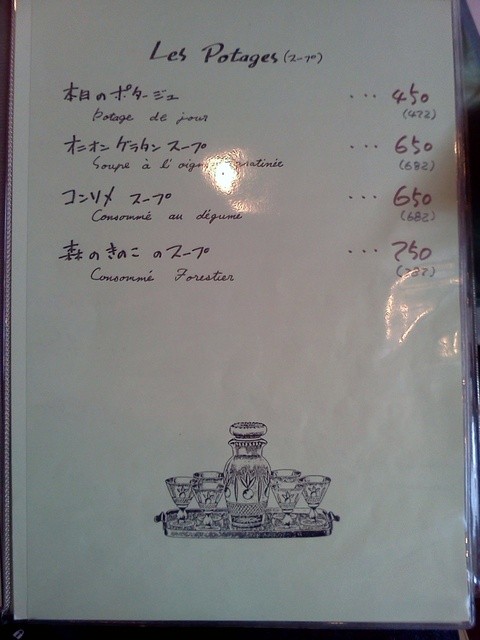 Les Potages (スープ)
本日のポタージュ ・・・ 450
Potage de jour (472)
オニオングラタンスープ ・・・ 650
Soupe à l'oignon gratinée (682)
コンソメ スープ ・・・ 650
Consommé au dégume (682)
森のきのこのスープ ・・・ 750
Consommé Forestier